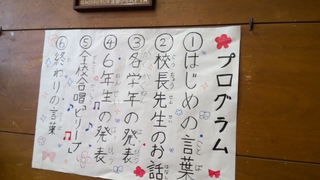 プログラム
①はじめの言葉
②校長先生のお話
③各学年の発表
④６年生の発表
⑤全校合唱ビリーブ
⑥終わりの言葉